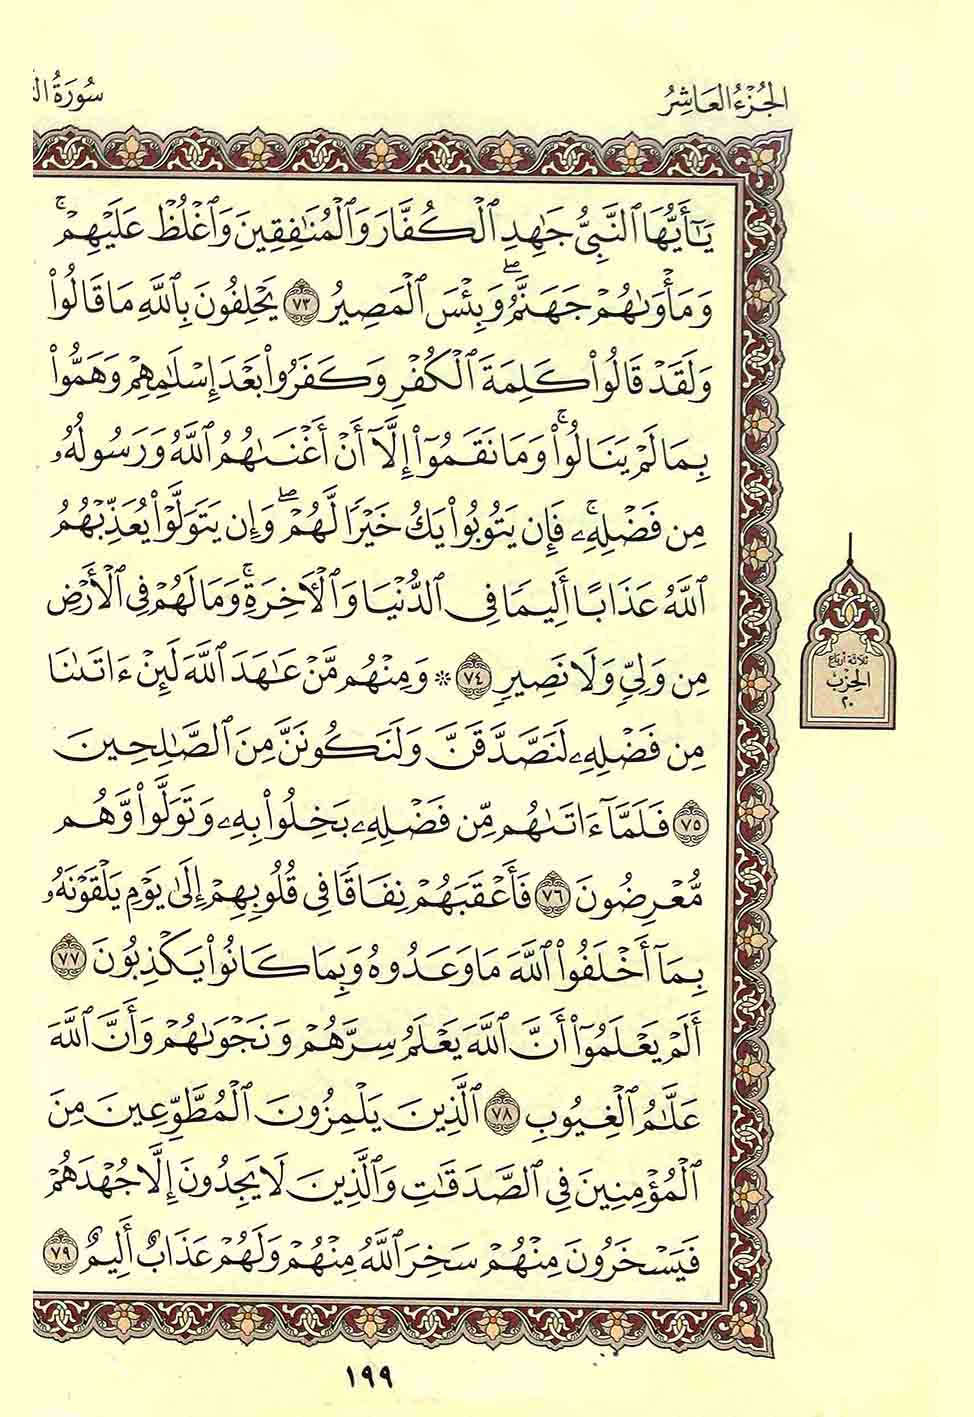 الجُزْءُ العَاشِرُ
سُورَةُ ال
يَٰٓأَيُّهَا ٱلنَّبِيُّ جَٰهِدِ ٱلْكُفَّارَ وَٱلْمُنَٰفِقِينَ وَٱغْلُظْ عَلَيْهِمْۚ
وَمَأْوَىٰهُمْ جَهَنَّمُۖ وَبِئْسَ ٱلْمَصِيرُ ٧٣ يَحْلِفُونَ بِٱللَّهِ مَا قَالُوا۟
وَلَقَدْ قَالُوا۟ كَلِمَةَ ٱلْكُفْرِ وَكَفَرُوا۟ بَعْدَ إِسْلَٰمِهِمْ وَهَمُّوا۟
بِمَا لَمْ يَنَالُوا۟ۚ وَمَا نَقَمُوٓا۟ إِلَّآ أَنْ أَغْنَىٰهُمُ ٱللَّهُ وَرَسُولُهُۥ
مِن فَضْلِهِۦۚ فَإِن يَتُوبُوا۟ يَكُ خَيْرًا لَّهُمْۖ وَإِن يَتَوَلَّوْا۟ يُعَذِّبْهُمُ
ٱللَّهُ عَذَابًا أَلِيمًا فِى ٱلدُّنْيَا وَٱلْأَخِرَةِۚ وَمَا لَهُمْ فِى ٱلْأَرْضِ
مِن وَلِىٍّ وَلَا نَصِيرٍ ٧٤ ۞ وَمِنْهُم مَّنْ عَٰهَدَ ٱللَّهَ لَئِنْ ءَاتَىٰنَا
مِن فَضْلِهِۦ لَنَصَّدَّقَنَّ وَلَنَكُونَنَّ مِنَ ٱلصَّٰلِحِينَ
٧٥ فَلَمَّآ ءَاتَىٰهُم مِّن فَضْلِهِۦ بَخِلُوا۟ بِهِۦ وَتَوَلَّوا۟ وَّهُم
مُّعْرِضُونَ ٧٦ فَأَعْقَبَهُمْ نِفَاقًا فِى قُلُوبِهِمْ إِلَىٰ يَوْمِ يَلْقَوْنَهُۥ
بِمَآ أَخْلَفُوا۟ ٱللَّهَ مَا وَعَدُوهُ وَبِمَا كَانُوا۟ يَكْذِبُونَ ٧٧
أَلَمْ يَعْلَمُوٓا۟ أَنَّ ٱللَّهَ يَعْلَمُ سِرَّهُمْ وَنَجْوَىٰهُمْ وَأَنَّ ٱللَّهَ
عَلَّٰمُ ٱلْغُيُوبِ ٧٨ ٱلَّذِينَ يَلْمِزُونَ ٱلْمُطَّوِّعِينَ مِنَ
ٱلْمُؤْمِنِينَ فِى ٱلصَّدَقَٰتِ وَٱلَّذِينَ لَا يَجِدُونَ إِلَّا جُهْدَهُمْ
فَيَسْخَرُونَ مِنْهُمْ سَخِرَ ٱللَّهُ مِنْهُمْ وَلَهُمْ عَذَابٌ أَلِيمٌ ٧٩
ثلاثة أرباع
الحِزْب
٢٠
١٩٩